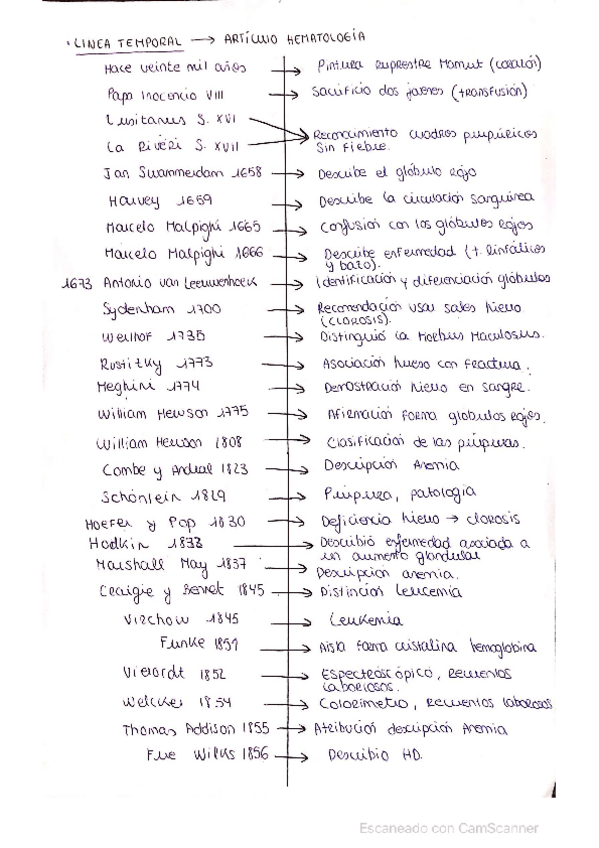 · LINEA TEMPORAL → ARTÍCULO HEMATOLOGÍA
Hace veinte mil años → Pintura Rupestre Mamut (corazón)
Papa Inocencio VIII → Sacrificio dos jovenes (transfusión)
Lusitanus S. XVI
La Rivéri S. XVII → Reconocimiento cuadros purpúricos
Sin Fiebre.
Jan Swammerdam 1658 → Describe el glóbulo rojo
Harvey 1659 → Describe la circulación sanguínea
Marcelo Malpighi 1665 → Confusión con los glóbulos rojos
Marcelo Malpighi 1666 → Describe enfermedad (t. linfáticos
y bazo).
1673 Antonio van Leeuwenhoek → Identificación y diferenciación glóbulos
Sydenham 1700 → Recomendación usar sales hierro
(CLOROSIS).
Werlhof 1735 → Distinguió la Morbus Maculosus.
Rustitky 1773 → Asociación hueso con Fractura.
Meghini 1774 → Demostración hierro en sangre.
William Hewson 1775 → Afirmación Forma glóbulos rojos.
William Hewson 1808 → Clasificación de las púrpuras.
Combe y Andral 1823 → Descripción Anemia
Schönlein 1829 → Púrpura, patología
Hoefer y Pop 1830 → Deficiencia hierro → clorosis
Hodkin 1833 → Describió enfermedad asociada a
un aumento glandular
Marshall May 1837 → Descripción anemia.
Craigie y Bennet 1845 → Distinción leucemia
Virchow 1845 → Leukemia
Funke 1851 → Aisla forma cristalina hemoglobina
Vierordt 1852 → Espectroscópico, recuentos
laboriosos.
Welcker 1854 → Colorimetro, recuentos laboriosos
Thomas Addison 1855 → Atribución descripción Anemia
Wilks 1856 → Describio HD.
Escaneado con CamScanner